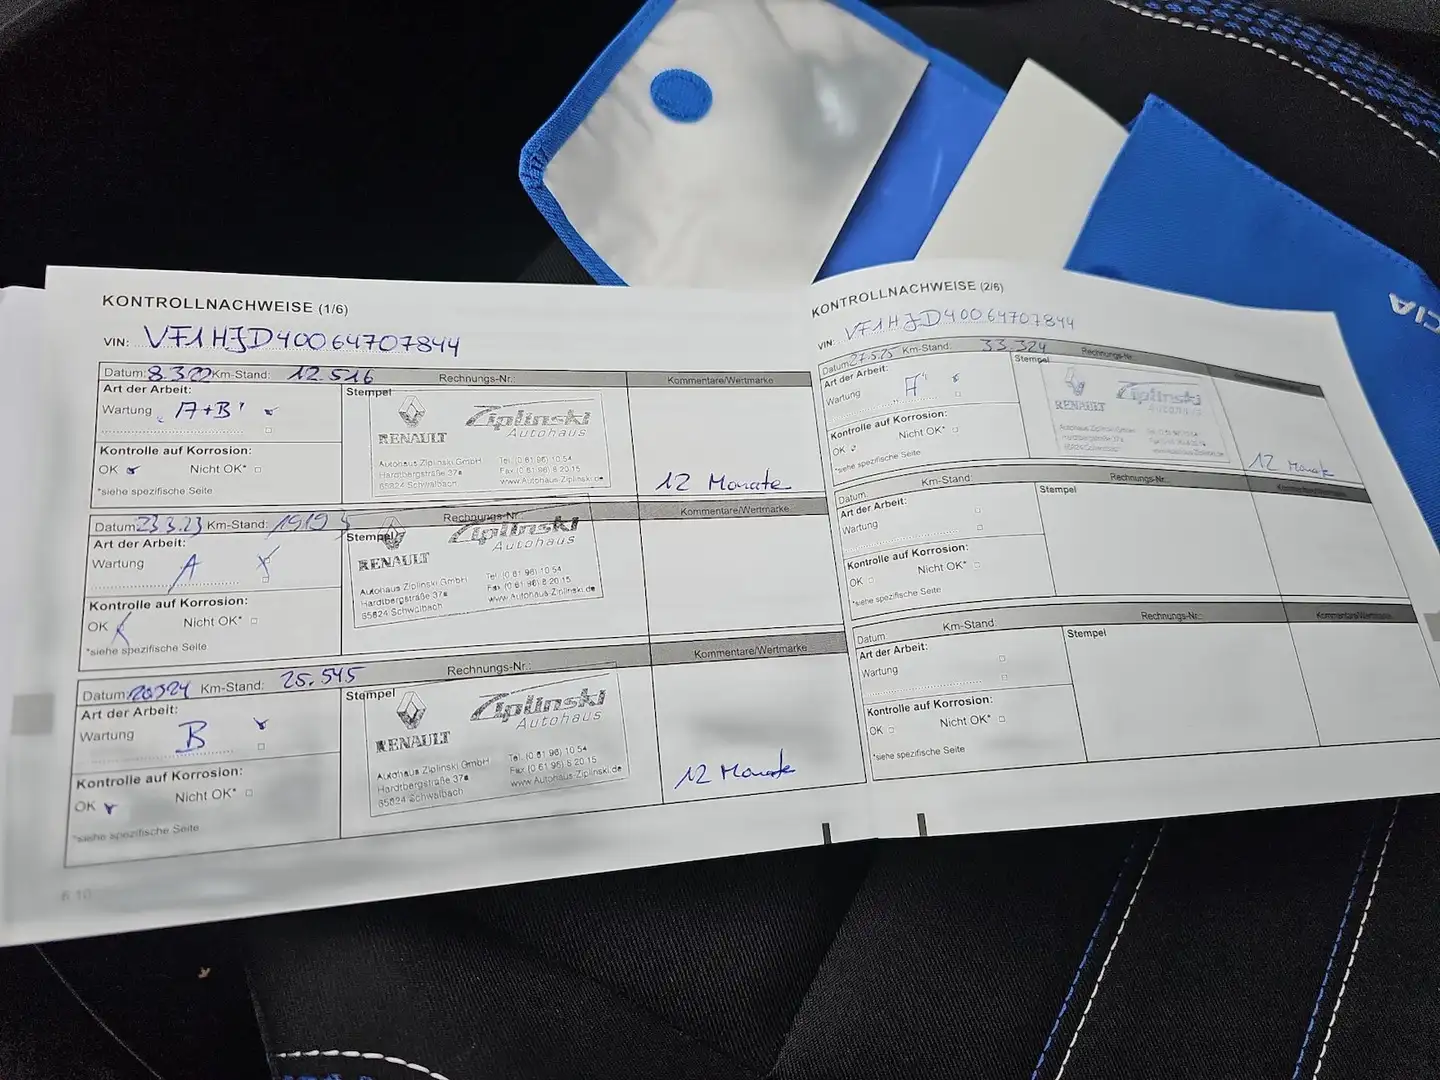 KONTROLLNACHWEISE (1/6)
VIN: VF1HJD40064707844
Datum: 8.3.22 Km-Stand: 12.516 Rechnungs-Nr.: Kommentare/Wertmarke
Art der Arbeit: Stempel
Wartung "A+B"
RENAULT Ziplinski Autohaus
Kontrolle auf Korrosion:
Autohaus Ziplinski GmbH Tel. (0 61 96) 10 54
Hardtbergstraße 37a Fax (0 61 96) 8 20 15
65824 Schwalbach www.Autohaus-Ziplinski.de
OK Nicht OK*
12 Monate
*siehe spezifische Seite
Datum: 23.3.23 Km-Stand: Rechnungs-Nr.: Kommentare/Wertmarke
Art der Arbeit: Stempel
Wartung A
RENAULT Ziplinski Autohaus
Autohaus Ziplinski GmbH Tel. (0 61 96) 10 54
Hardtbergstraße 37a Fax (0 61 96) 8 20 15
65824 Schwalbach www.Autohaus-Ziplinski.de
Kontrolle auf Korrosion:
OK Nicht OK*
*siehe spezifische Seite
Datum: Km-Stand: 25.545 Rechnungs-Nr.: Kommentare/Wertmarke
Art der Arbeit: Stempel
Wartung B
RENAULT Ziplinski Autohaus
Autohaus Ziplinski GmbH Tel. (0 61 96) 10 54
Hardtbergstraße 37a Fax (0 61 96) 8 20 15
65824 Schwalbach www.Autohaus-Ziplinski.de
Kontrolle auf Korrosion:
OK Nicht OK*
12 Monate
*siehe spezifische Seite
6.10
KONTROLLNACHWEISE (2/6)
VIN: VF1HJD40064707844
Datum: 27.5.25 Km-Stand: 33.324 Rechnungs-Nr.
Art der Arbeit: Stempel
Wartung "A"
RENAULT Ziplinski Autohaus
Autohaus Ziplinski GmbH
Hardtbergstraße 37a
65824 Schwalbach
Kontrolle auf Korrosion:
OK Nicht OK*
12 Monate
*siehe spezifische Seite
Datum: Km-Stand: Rechnungs-Nr.: Kommentare/Wertmarke
Art der Arbeit: Stempel
Wartung
Kontrolle auf Korrosion:
OK Nicht OK*
*siehe spezifische Seite
Datum: Km-Stand: Rechnungs-Nr.: Kommentare/Wertmarke
Art der Arbeit: Stempel
Wartung
Kontrolle auf Korrosion:
OK Nicht OK*
*siehe spezifische Seite
CIA